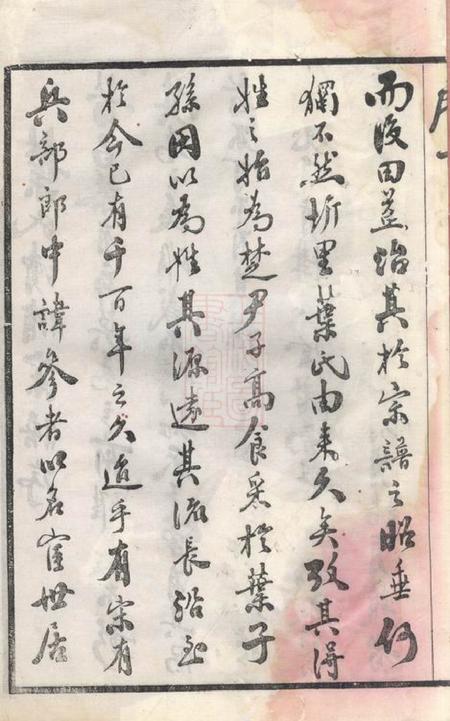 而後田益治其於宗譜之昭垂何
獨不然圻里葉氏由来久矣攷其得
姓之始為楚尹子高食采於葉子
孫因以為姓其源遠其流長沿至
於今已有千百年之久迨乎有宋有
兵部郎中諱參者以名宦世居